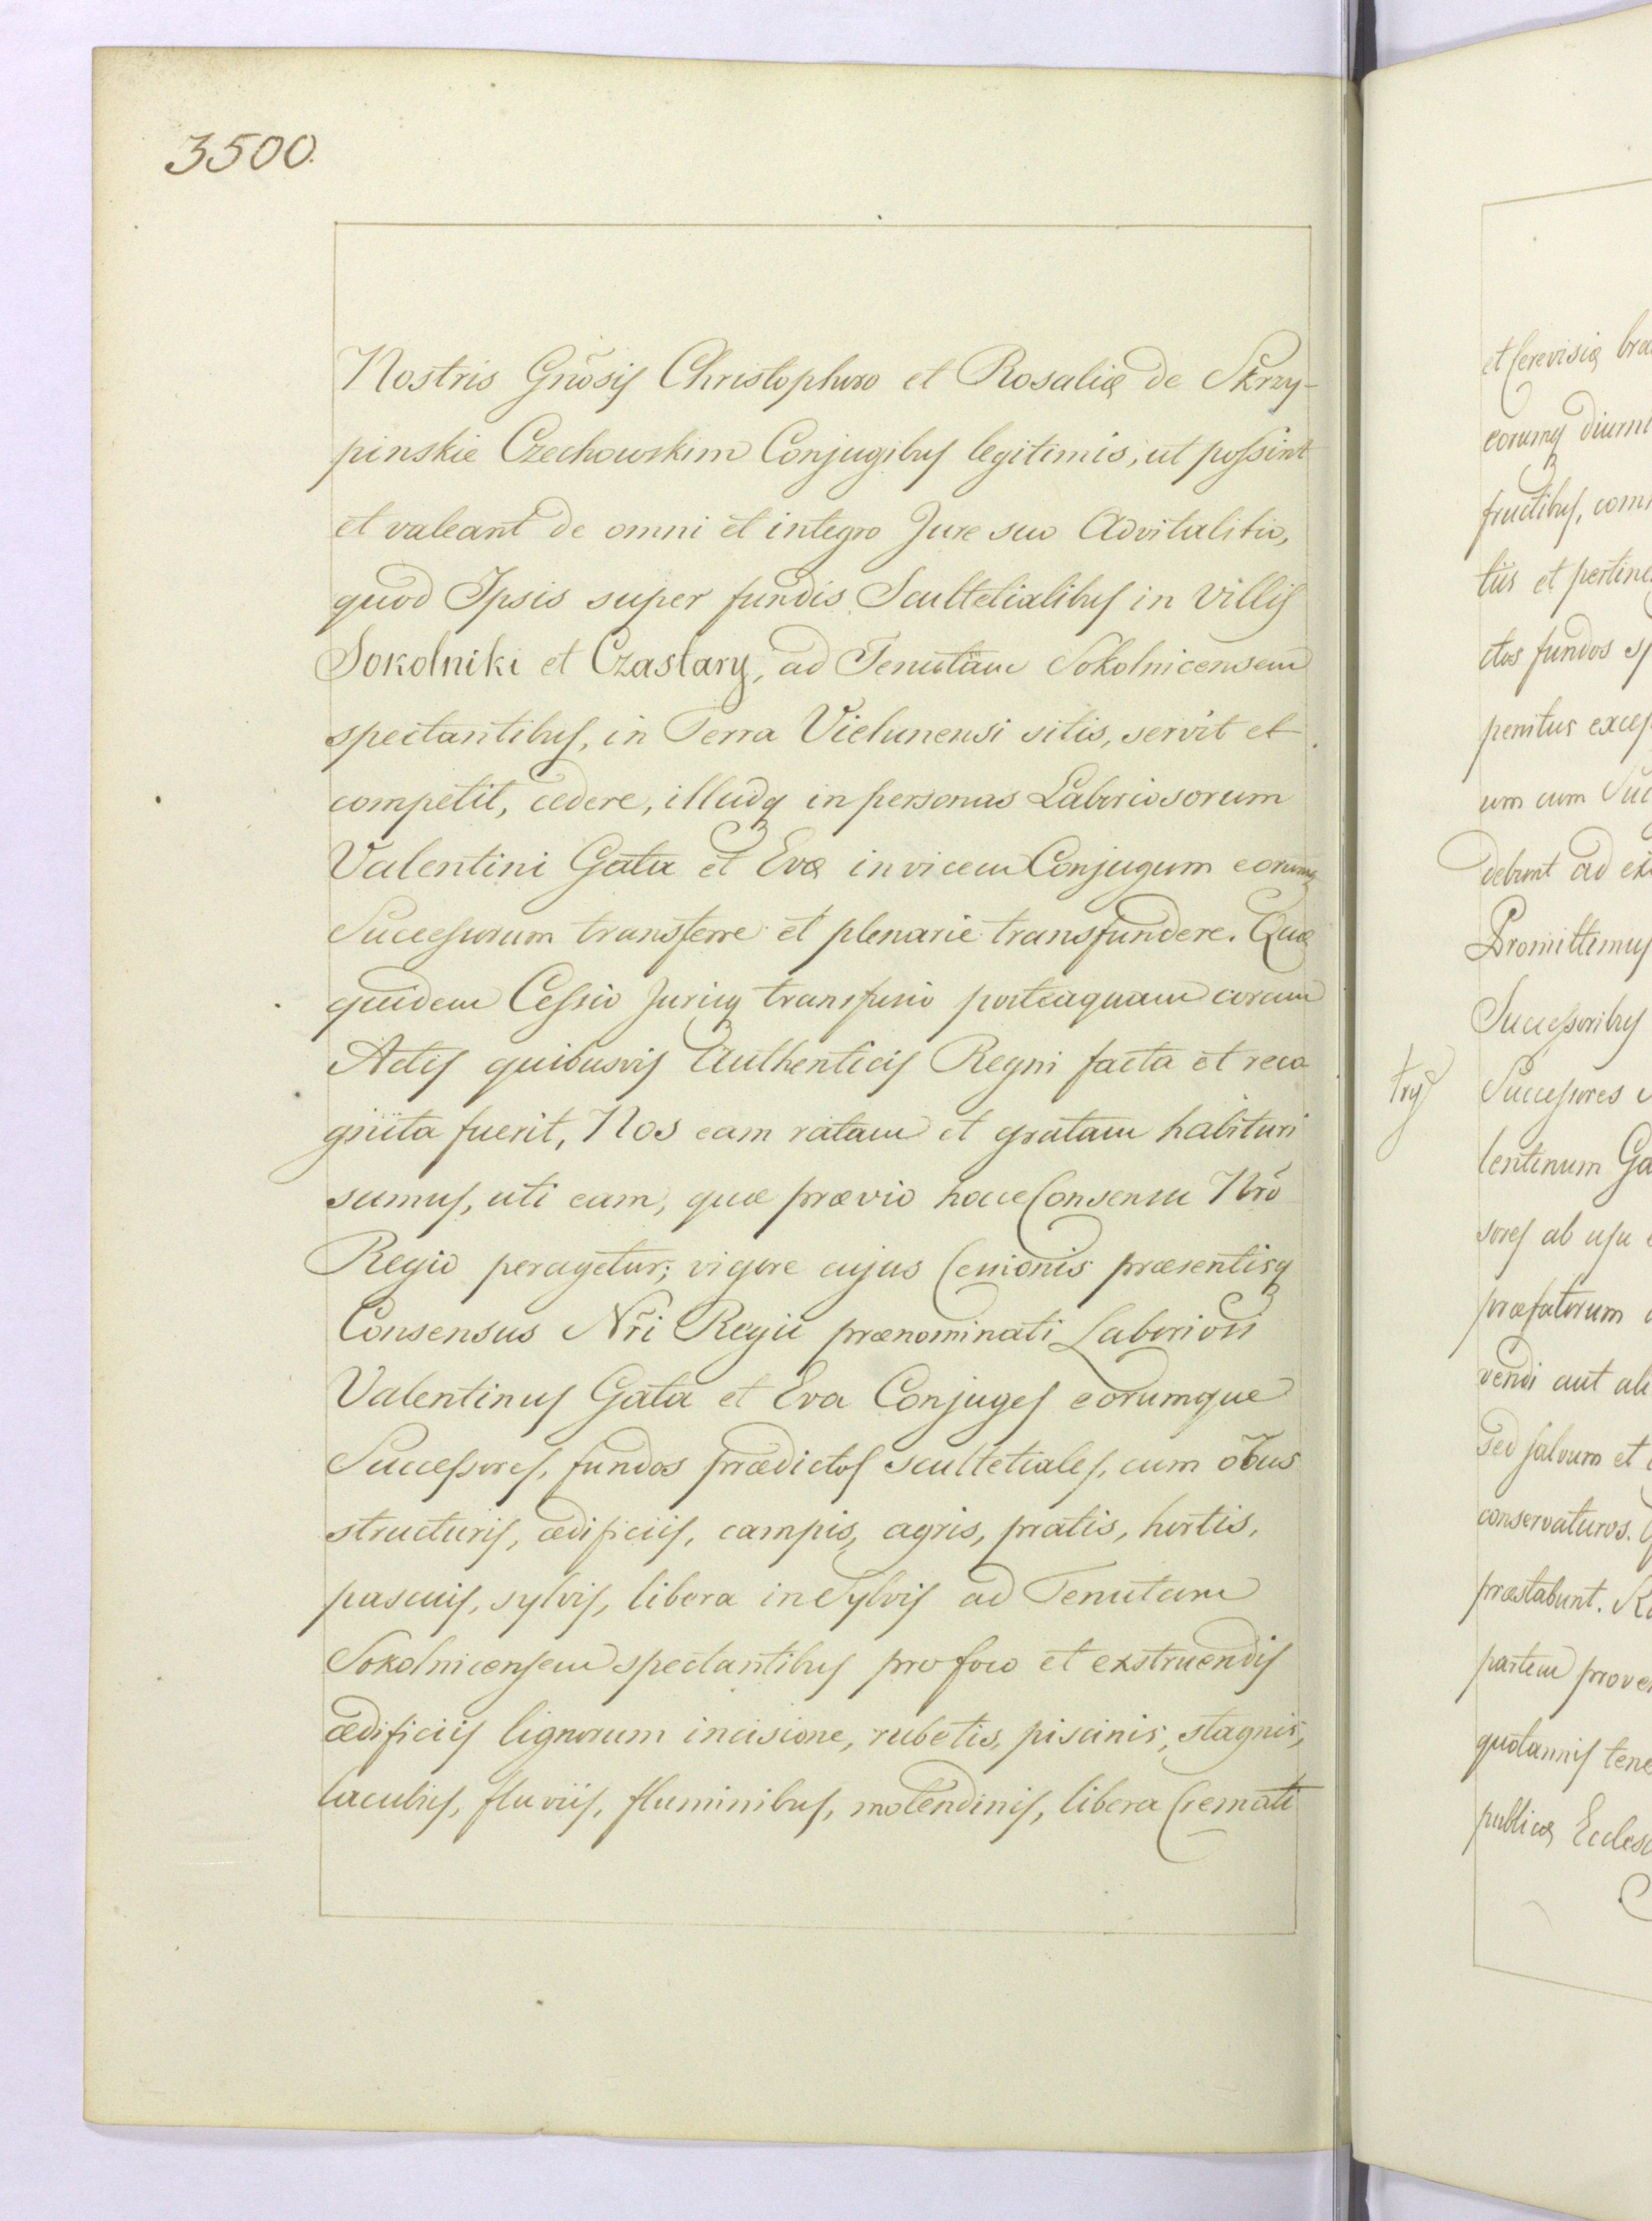 3500.
Nostris Gnõsis Christophoro et Rosaliæ de Skrzy-
pinskie Czechowskim Conjugibus legitimis, ut possint
et valeant de omni et integro Jure suo Advitalitio,
quod Ipsis super fundis Scultetialibus in Villis
Sokolniki et Czastary, ad Tenutam Sokolnicensem
spectantibus, in Terra Vielunensi sitis, servit et
competit, cedere, illudq in personas Laboriosorum
Valentini Gata et Evæ invicem Conjugum eorumq
Successorum transferre et plenarie transfundere. Quæ
quidem Cessio Jurisq transfusio posteaquam coram
Actis quibusvis Authenticis Regni facta et reco
gnita fuerit, Nos eam ratam et gratam habituri
sumus, uti eam, quæ prævio hocce Consensu Nrõ
Regio peragetur; vigore cujus Cessionis præsentisq
Consensus Nri Regii prænominati Laboriosi
Valentinus Gata et Eva Conjuges eorumque
Successores, fundos prædictos scultetiales, cum obus
structuris, ædificiis, campis, agris, pratis, hortis,
pascuis, sylvis, libera in Sylvis ad Tenutam
Sokolnicensem spectantibus pro foco et exstruendis
ædificiis lignorum incisione, rubetis, piscinis, stagnis,
lacubus, fluviis, fluminibus, molendinis, libera Cremati
et Cerevisiæ
eorumq
fructibus,
tiis et
ctos fundos
penitus
um cum
debunt ad
Promittimus
Successoribus
try
Successores
lentinum
sores ab usu
præfatorum
vendi aut
Sed salvum et
conservaturos.
præstabunt.
partem
quotannis
publicæ